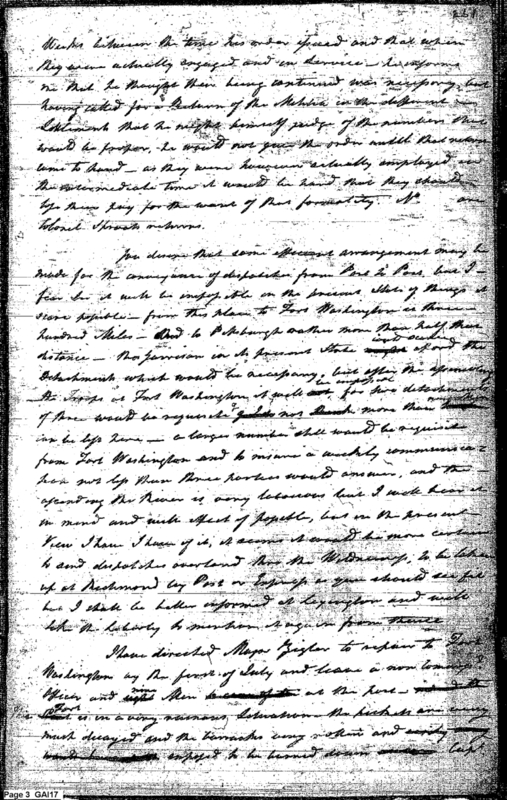 221
Weeks between the time his order issued and that when
they were actually engaged and in Service – he informs
me that he thought their being continued was necessary, but
having called for a Return of the Militia in the different
Settlements that he might himself judge of the numbers that
would be proper, he would not give the order until that return
came to hand – as they were however actually employed in
the intermediate time it would be hard that they should
lose their pay for the want of that formality. No are
Colonel Sproats returns.
You desire that some efficient arrangement may be
made for the conveyance of dispatches from Post to Post, but I
fear it will be impossible in the present State of things at
scarce possible – from this place to Fort Washington is three
hundred Miles – and to Pittsburgh rather more than half that
distance – the Garrison in its present State will scarcely afford the
Detachment which would be necessary, but after the assembling of
the Troops at Fort Washington it will be impossible, for two detachments
of three would be requisite not more than
can be left here – a larger number still would be requisite
from Fort Washington and to insure a weekly communica-
tion not less than three parties would answer, and the
ascending the River is very laborious but I will bear it
in mind and will effect if possible, but in the present
View I have of it, it seems it would be more certain
to send dispatches overland thro the Wilderness, to be taken
up at Richmond by Post or Express as you should see fit
but I shall be better informed at Lexington and will
take the liberty to mention it again from thence
I have directed Major Zeigler to repair to Fort
Washington by the first of July and leave a non Commiss.d
Officer and nine Men at the post –
Fort is in a very ruinous Situation the pickets are very
much decayed and the barracks very rotten and
exposed to be burned down Capt
Page 3 GAI17